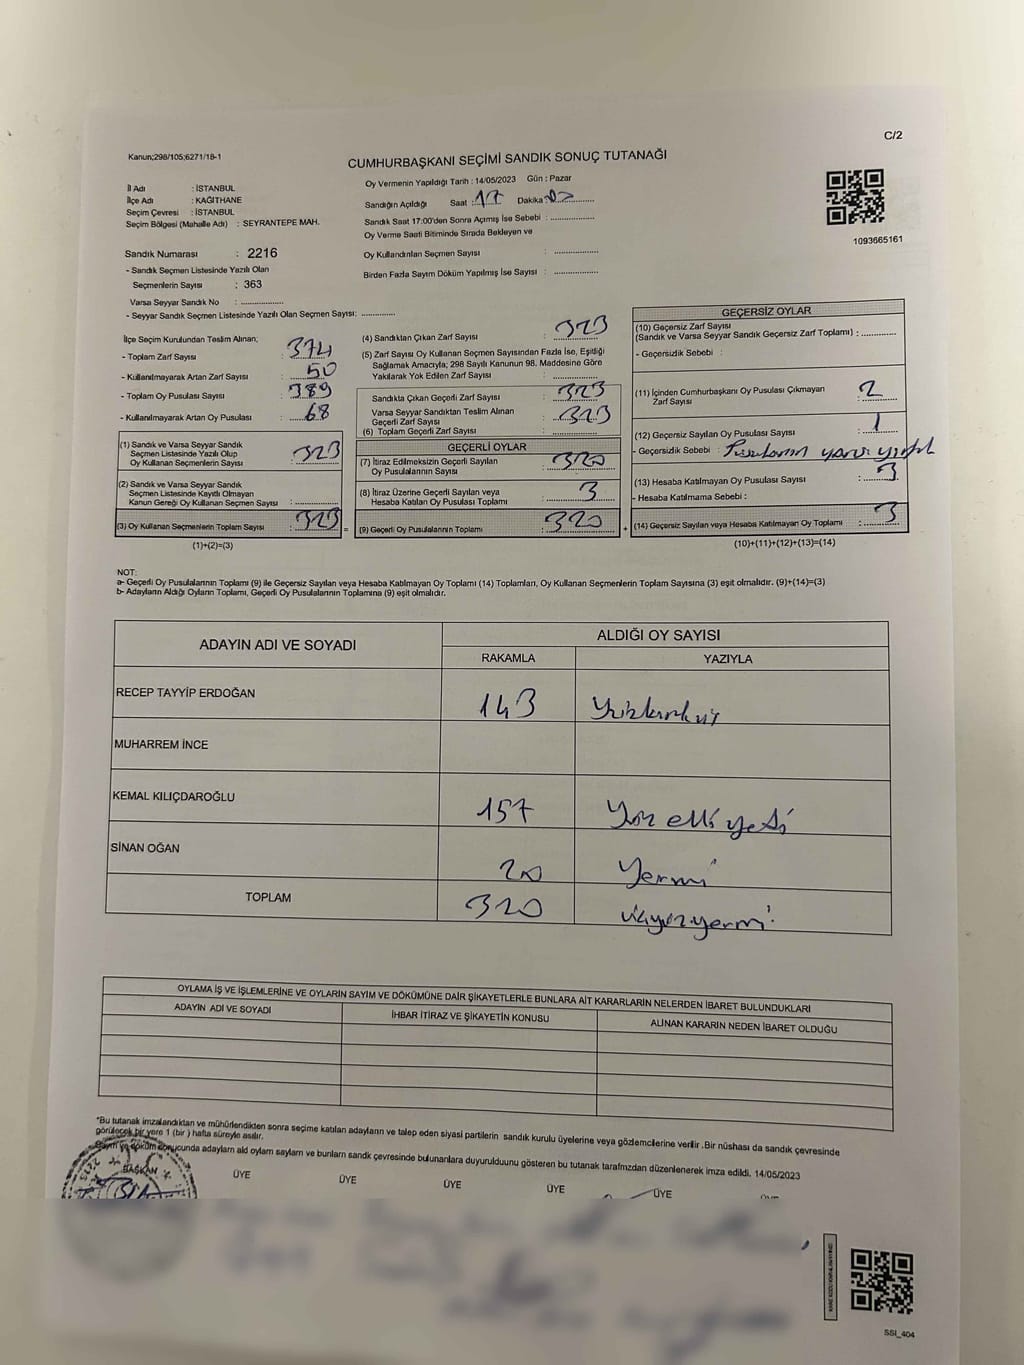 C/2
Kanun;298/105;6271/18-1
CUMHURBAŞKANI SEÇİMİ SANDIK SONUÇ TUTANAĞI
İl Adı : İSTANBUL
İlçe Adı : KAĞITHANE
Seçim Çevresi : İSTANBUL
Seçim Bölgesi (Mahalle Adı) : SEYRANTEPE MAH.
Oy Vermenin Yapıldığı Tarih : 14/05/2023 Gün : Pazar
Sandığın Açıldığı Saat : 17 Dakika
Sandık Saat 17:00'den Sonra Açımış İse Sebebi :
Oy Verme Saati Bitiminde Sırada Bekleyen ve
Oy Kullandırılan Seçmen Sayısı :
Birden Fazla Sayım Döküm Yapılmış İse Sayısı :
1093665161
Sandık Numarası : 2216
- Sandık Seçmen Listesinde Yazılı Olan
Seçmenlerin Sayısı : 363
Varsa Seyyar Sandık No :
- Seyyar Sandık Seçmen Listesinde Yazılı Olan Seçmen Sayısı:
İlçe Seçim Kurulundan Teslim Alınan;
- Toplam Zarf Sayısı : 374
- Kullanılmayarak Artan Zarf Sayısı : 50
- Toplam Oy Pusulası Sayısı : 389
- Kullanılmayarak Artan Oy Pusulası : 68
(1) Sandık ve Varsa Seyyar Sandık
Seçmen Listesinde Yazılı Olup
Oy Kullanan Seçmenlerin Sayısı : 323
(2) Sandık ve Varsa Seyyar Sandık
Seçmen Listesinde Kayıtlı Olmayan
Kanun Gereği Oy Kullanan Seçmen Sayısı :
(3) Oy Kullanan Seçmenlerin Toplam Sayısı : 323
(1)+(2)=(3)
(4) Sandıktan Çıkan Zarf Sayısı : 323
(5) Zarf Sayısı Oy Kullanan Seçmen Sayısından Fazla İse, Eşitliği
Sağlamak Amacıyla; 298 Sayılı Kanunun 98. Maddesine Göre
Yakılarak Yok Edilen Zarf Sayısı :
Sandıkta Çıkan Geçerli Zarf Sayısı : 323
Varsa Seyyar Sandıktan Teslim Alınan
Geçerli Zarf Sayısı : 323
(6) Toplam Geçerli Zarf Sayısı :
GEÇERLİ OYLAR
(7) İtiraz Edilmeksizin Geçerli Sayılan
Oy Pusulalarının Sayısı : 320
(8) İtiraz Üzerine Geçerli Sayılan veya
Hesaba Katılan Oy Pusulası Toplamı : 3
(9) Geçerli Oy Pusulalarının Toplamı : 320
GEÇERSİZ OYLAR
(10) Geçersiz Zarf Sayısı
(Sandık ve Varsa Seyyar Sandık Geçersiz Zarf Toplamı) :
- Geçersizlik Sebebi :
(11) İçinden Cumhurbaşkanı Oy Pusulası Çıkmayan
Zarf Sayısı : 2
(12) Geçersiz Sayılan Oy Pusulası Sayısı : 1
- Geçersizlik Sebebi : Pusulanın yarısı
(13) Hesaba Katılmayan Oy Pusulası Sayısı : 3
- Hesaba Katılmama Sebebi :
(14) Geçersiz Sayılan veya Hesaba Katılmayan Oy Toplamı : 3
(10)+(11)+(12)+(13)=(14)
NOT:
a- Geçerli Oy Pusulalarının Toplamı (9) ile Geçersiz Sayılan veya Hesaba Katılmayan Oy Toplamı (14) Toplamları, Oy Kullanan Seçmenlerin Toplam Sayısına (3) eşit olmalıdır. (9)+(14)=(3)
b- Adayların Aldığı Oyların Toplamı, Geçerli Oy Pusulalarının Toplamına (9) eşit olmalıdır.
ADAYIN ADI VE SOYADI ALDIĞI OY SAYISI
RAKAMLA YAZIYLA
RECEP TAYYİP ERDOĞAN 143
MUHARREM İNCE
KEMAL KILIÇDAROĞLU 157 Yüz elli yedi
SİNAN OĞAN 20 Yermi
TOPLAM 320 üçyüzyermi
OYLAMA İŞ VE İŞLEMLERİNE VE OYLARIN SAYIM VE DÖKÜMÜNE DAİR ŞİKAYETLERLE BUNLARA AİT KARARLARIN NELERDEN İBARET BULUNDUKLARI
ADAYIN ADI VE SOYADI İHBAR İTİRAZ VE ŞİKAYETİN KONUSU ALINAN KARARIN NEDEN İBARET OLDUĞU
*Bu tutanak imzalandıktan ve mühürlendikten sonra seçime katılan adayların ve talep eden siyasi partilerin sandık kurulu üyelerine veya gözlemcilerine verilir .Bir nüshası da sandık çevresinde
görülecek bir yere 1 (bir ) hafta süreyle asılır.
Sayım ve döküm sonucunda adayların ald oyların sayların ve bunların sandık çevresinde bulunanlara duyurulduunu gösteren bu tutanak tarafmzdan düzenlenerek imza edildi. 14/05/2023
BAŞKAN ÜYE ÜYE ÜYE ÜYE ÜYE
SSI_404